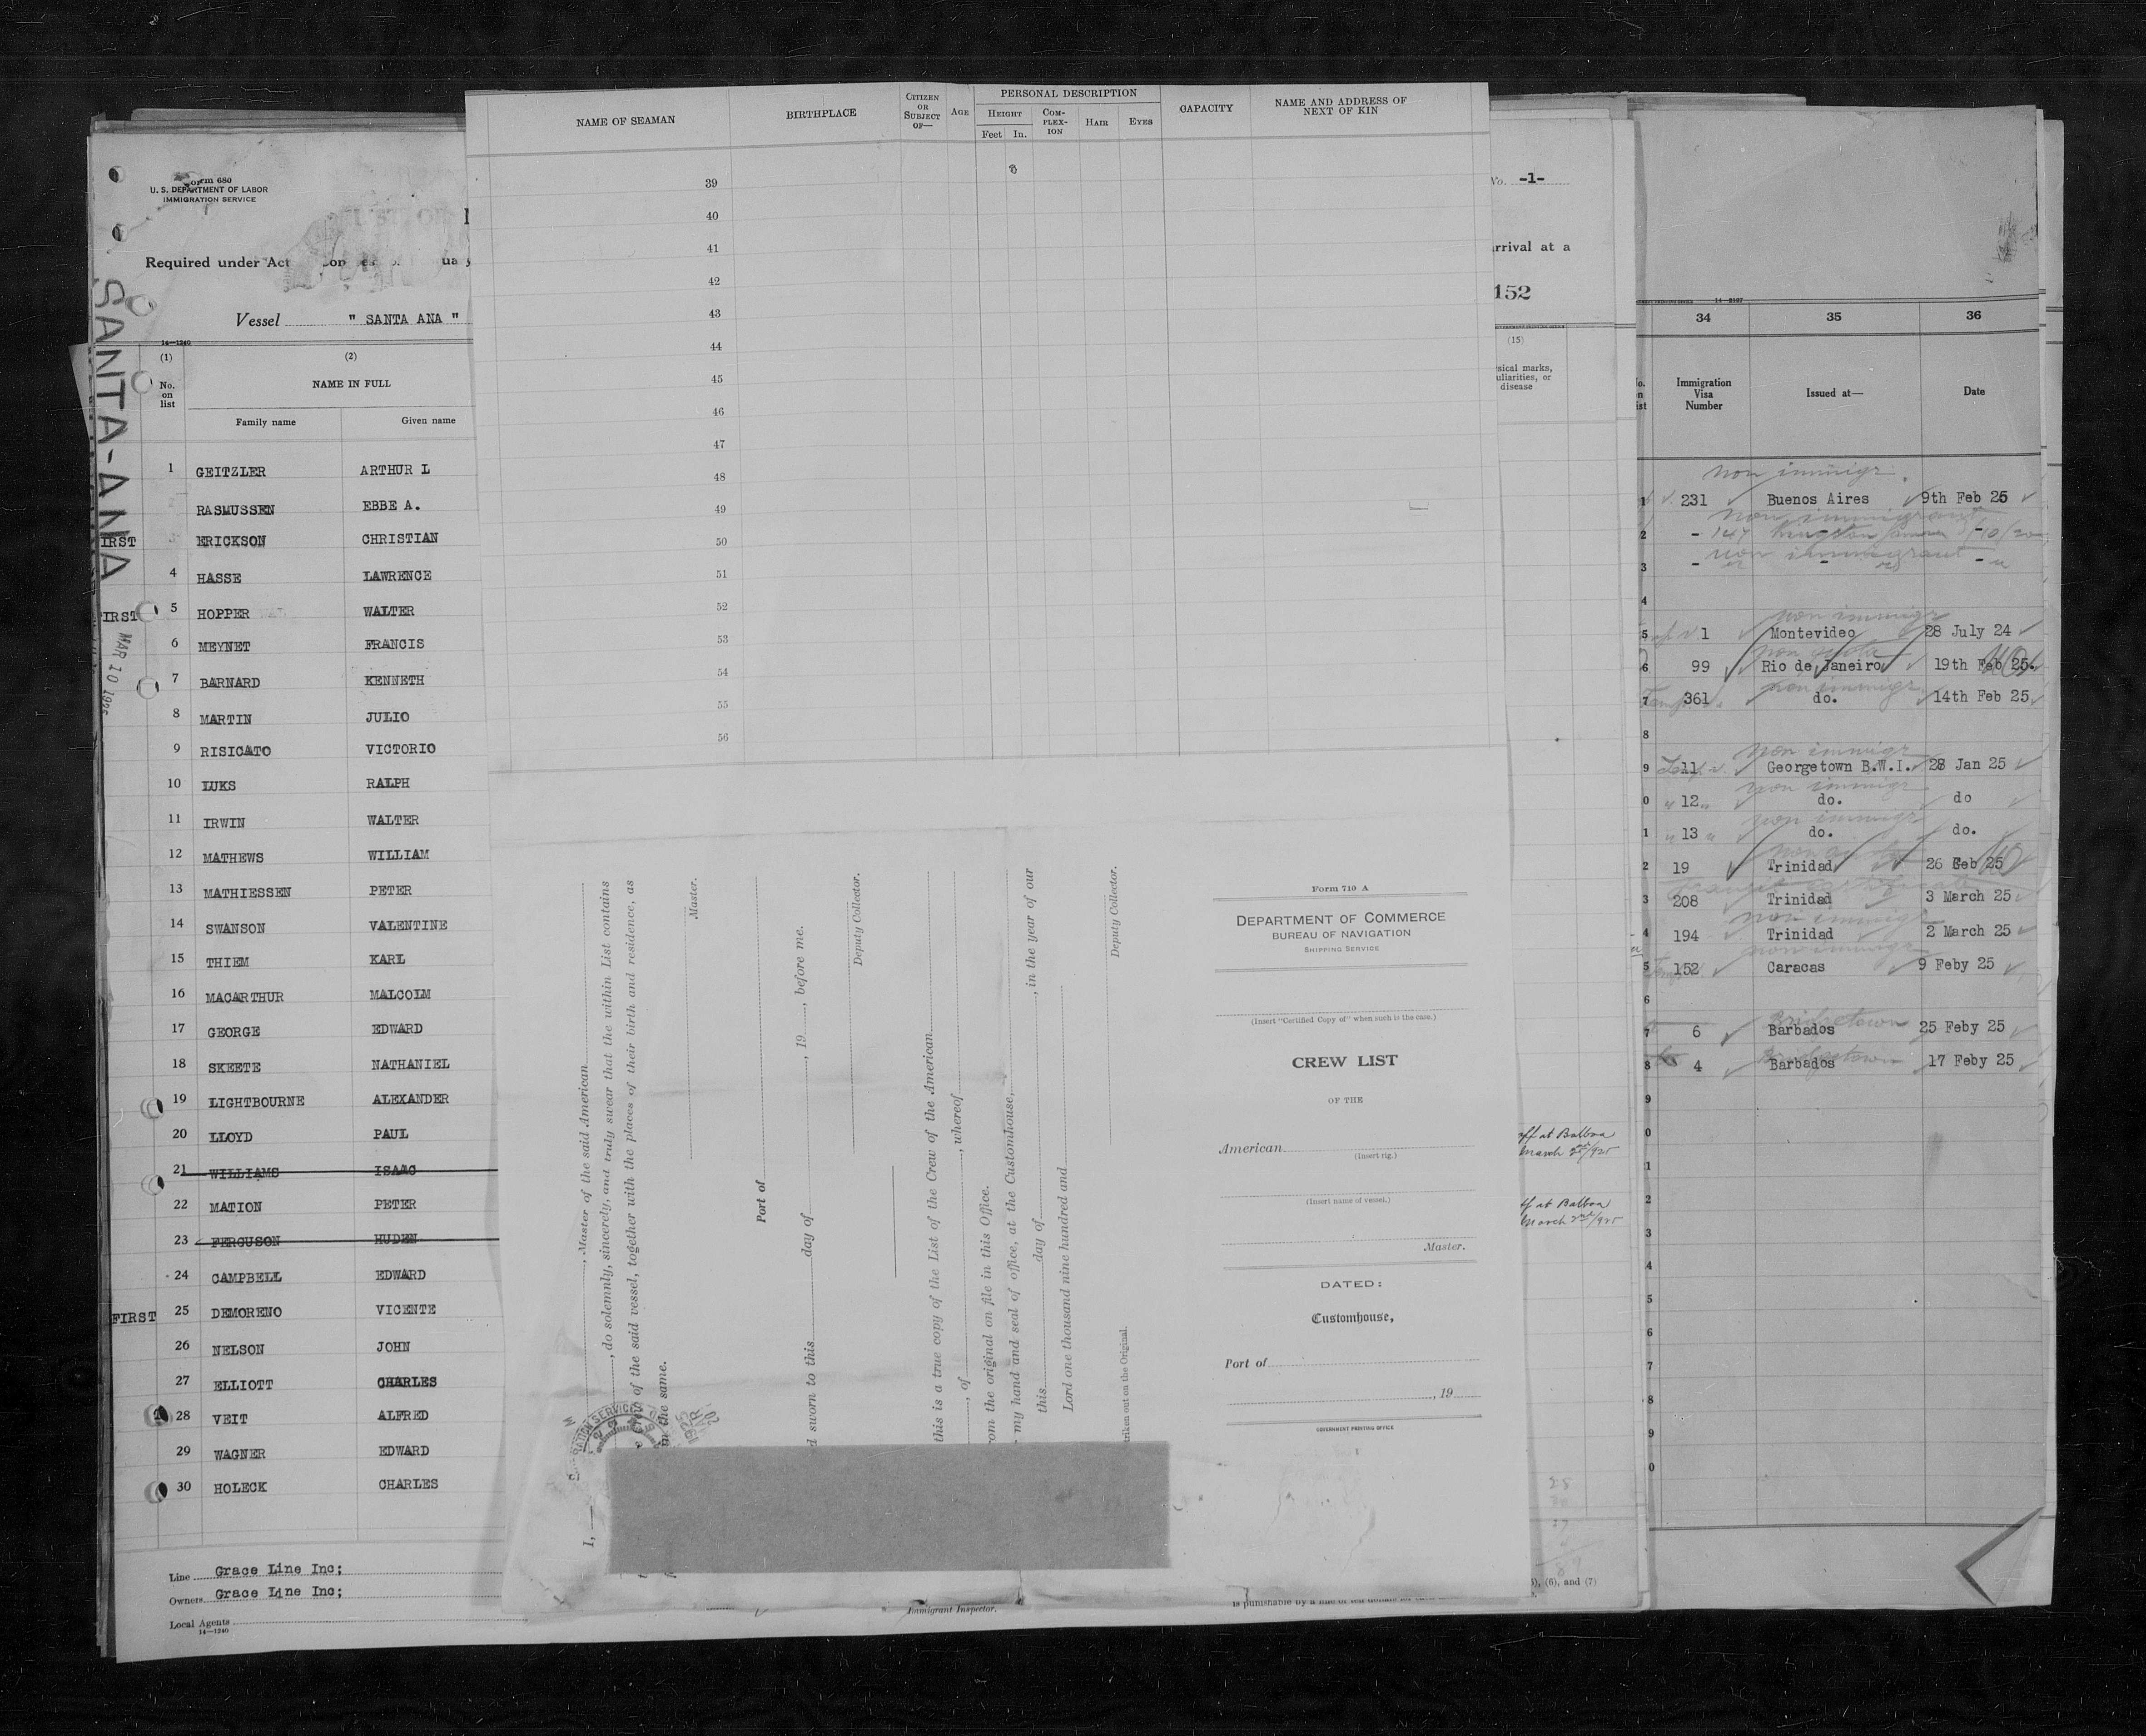 Form 680
U. S. DEPARTMENT OF LABOR
IMMIGRATION SERVICE
Required under Act
Vessel " SANTA ANA "
SANTA-ANA
MAR 10 1925
14—1240
(1) (2)
No. on list
NAME IN FULL
Family name Given name
1 GEITZLER ARTHUR L
RASMUSSEN EBBE A.
IRST 3 ERICKSON CHRISTIAN
4 HASSE LAWRENCE
IRST 5 HOPPER WALTER
6 MEYNET FRANCIS
7 BARNARD KENNETH
8 MARTIN JULIO
9 RISICATO VICTORIO
10 LUKS RALPH
11 IRWIN WALTER
12 MATHEWS WILLIAM
13 MATHIESSEN PETER
14 SWANSON VALENTINE
15 THIEM KARL
16 MACARTHUR MALCOLM
17 GEORGE EDWARD
18 SKEETE NATHANIEL
19 LIGHTBOURNE ALEXANDER
20 LLOYD PAUL
21 WILLIAMS ISAAC
22 MATION PETER
23 FERGUSON HUDEN
24 CAMPBELL EDWARD
FIRST 25 DEMORENO VICENTE
26 NELSON JOHN
27 ELLIOTT CHARLES
28 VEIT ALFRED
29 WAGNER EDWARD
30 HOLECK CHARLES
Line Grace Line Inc;
Owners Grace Line Inc;
Local Agents
14—1240
NAME OF SEAMAN
BIRTHPLACE
CITIZEN OR SUBJECT OF—
AGE
PERSONAL DESCRIPTION
HEIGHT
Feet In.
COM-PLEX-ION
HAIR
EYES
CAPACITY
NAME AND ADDRESS OF NEXT OF KIN
39
40
41
42
43
44
45
46
47
48
49
50
51
52
53
54
55
56
I,
, Master of the said American
, do solemnly, sincerely, and truly swear that the within List contains
of the said vessel, together with the places of their birth and residence, as
the same.
Master.
Port of
sworn to this day of , 19 , before me.
Deputy Collector.
this is a true copy of the List of the Crew of the American
, of , whereof
from the original on file in this Office.
my hand and seal of office, at the Customhouse,
this day of , in the year of our
Lord one thousand nine hundred and
Deputy Collector.
out on the Original.
Form 710 A
DEPARTMENT OF COMMERCE
BUREAU OF NAVIGATION
SHIPPING SERVICE
(Insert "Certified Copy of" when such is the case.)
CREW LIST
OF THE
American
(Insert rig.)
(Insert name of vessel.)
Master.
DATED:
Customhouse,
Port of
, 19
GOVERNMENT PRINTING OFFICE
Immigrant Inspector.
No. -1-
arrival at a
152
(15)
sical marks,
uliarities, or
disease
off at Balboa
March 2nd/925
at Balboa
March 2nd/925
(6), and (7)
is punishable by a
14—2107
34 35 36
Immigration Visa Number
Issued at—
Date
non immigr.
1 231 Buenos Aires 9th Feb 25
non immigrant
2 - 147
non immigrant
3 - - -
4
non immigr
5 1 Montevideo 28 July 24
non quota
6 99 Rio de Janeiro 19th Feb 25.
non immigr
7 361 do. 14th Feb 25
8
non immigr
9 11 Georgetown B.W.I. 28 Jan 25
non immigr
0 " 12 " do. do
non immigr
1 " 13 " do. do.
non quota
2 19 Trinidad 26 Feb 25
3 208 Trinidad 3 March 25
non immigr
4 194 Trinidad 2 March 25
non immigr
5 152 Caracas 9 Feby 25
6
Bridgetown
7 6 Barbados 25 Feby 25
Bridgetown
8 4 Barbados 17 Feby 25
9
0
1
2
3
4
5
6
7
8
9
0